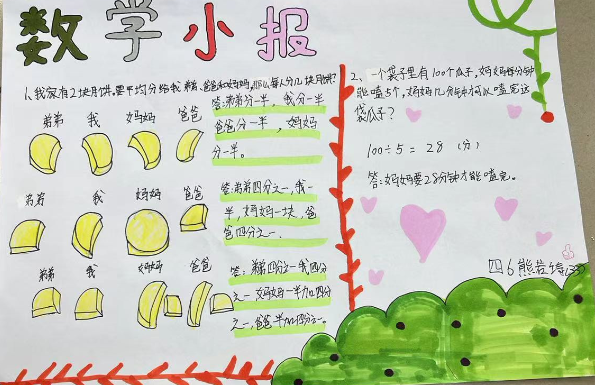 数学小报
1、我家有2块月饼,要平均分给我、弟弟、爸爸和妈妈,那么每人分几块月饼?
弟弟 我 妈妈 爸爸
答:弟弟分一半,我分一半
爸爸分一半,妈妈
分一半。
弟弟 我 妈妈 爸爸
答:弟弟四分之一,我一
半,妈妈一块,爸
爸四分之一.
弟弟 我 妈妈 爸爸
答:弟弟四分之一我四分
之一妈妈一半加四分
之一,爸爸半加四分之一.
2、一个袋子里有100个瓜子,妈妈每分钟
能嗑5个,妈妈几分钟可以嗑完这
袋瓜子?
100÷5=28(分)
答:妈妈要28分钟才能嗑完。
四6熊若